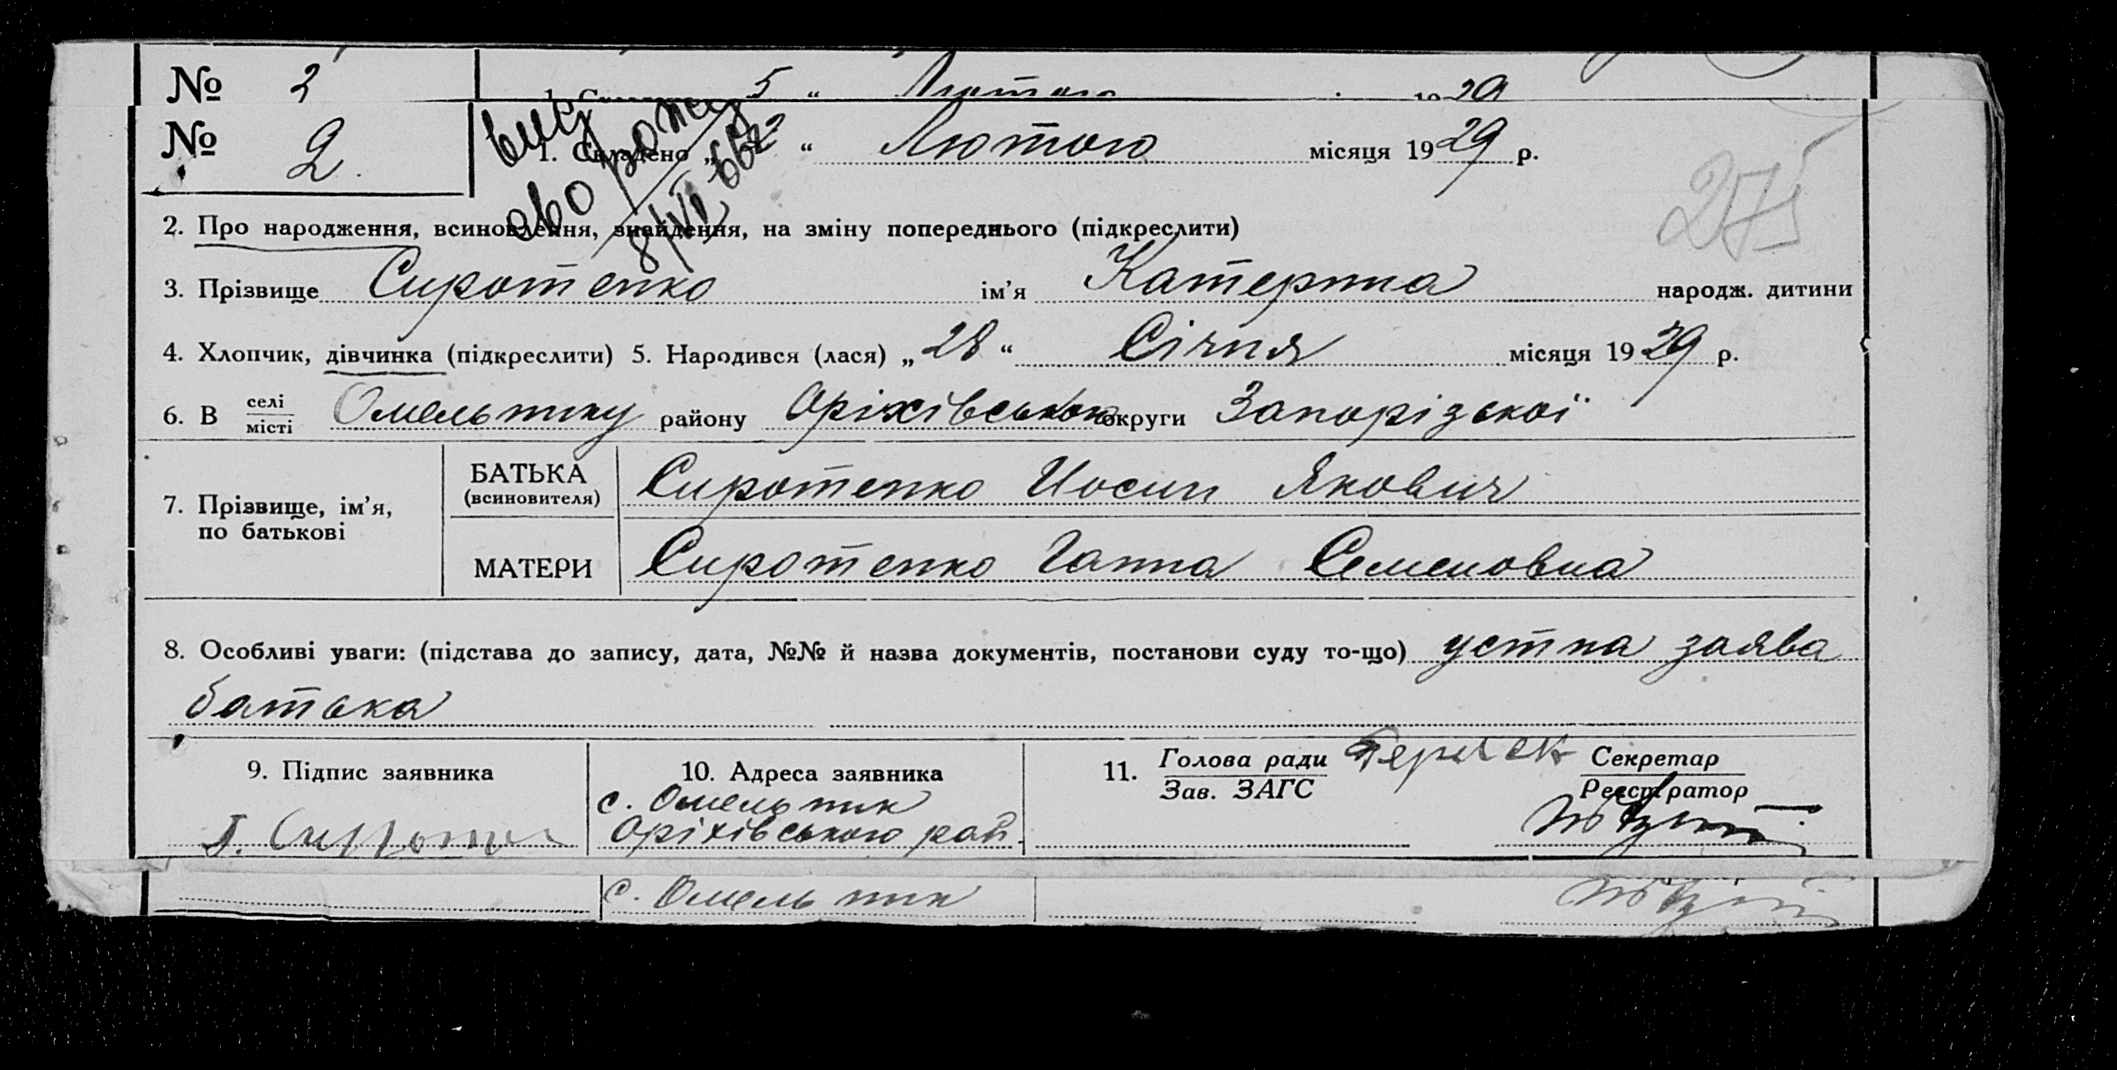 № 2
5 " Лютого 29
№ 2.
1. Складено „ " Лютого місяця 1929 р.
275
2. Про народження, всиновлення, знайдення, на зміну попереднього (підкреслити)
3. Прізвище Сиротенко ім'я Катерина народж. дитини
4. Хлопчик, дівчинка (підкреслити) 5. Народився (лася) „ 28 " Січня місяця 1929 р.
6. В селі місті Омельнику району Оріхівського округи Запорізької
7. Прізвище, ім'я, по батькові
БАТЬКА (всиновителя) Сиротенко Иосип Якович
МАТЕРИ Сиротенко Ганна Семеновна
8. Особливі уваги: (підстава до запису, дата, №№ й назва документів, постанови суду то-що) устна заява
батька
9. Підпис заявника
10. Адреса заявника
с. Омельник
Оріхівського рай.
11. Голова ради Зав. ЗАГС
Секретар Реєстратор
с. Омельник